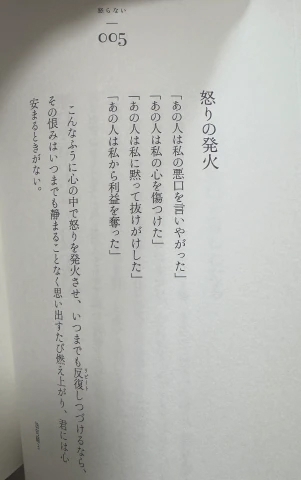 怒らない
005
怒りの発火
「あの人は私の悪口を言いやがった」
「あの人は私の心を傷つけた」
「あの人は私に黙って抜けがけした」
「あの人は私から利益を奪った」
こんなふうに心の中で怒りを発火させ、いつまでも反復しつづけるなら、
その恨みはいつまでも静まることなく思い出すたび燃え上がり、君には心
安まるときがない。